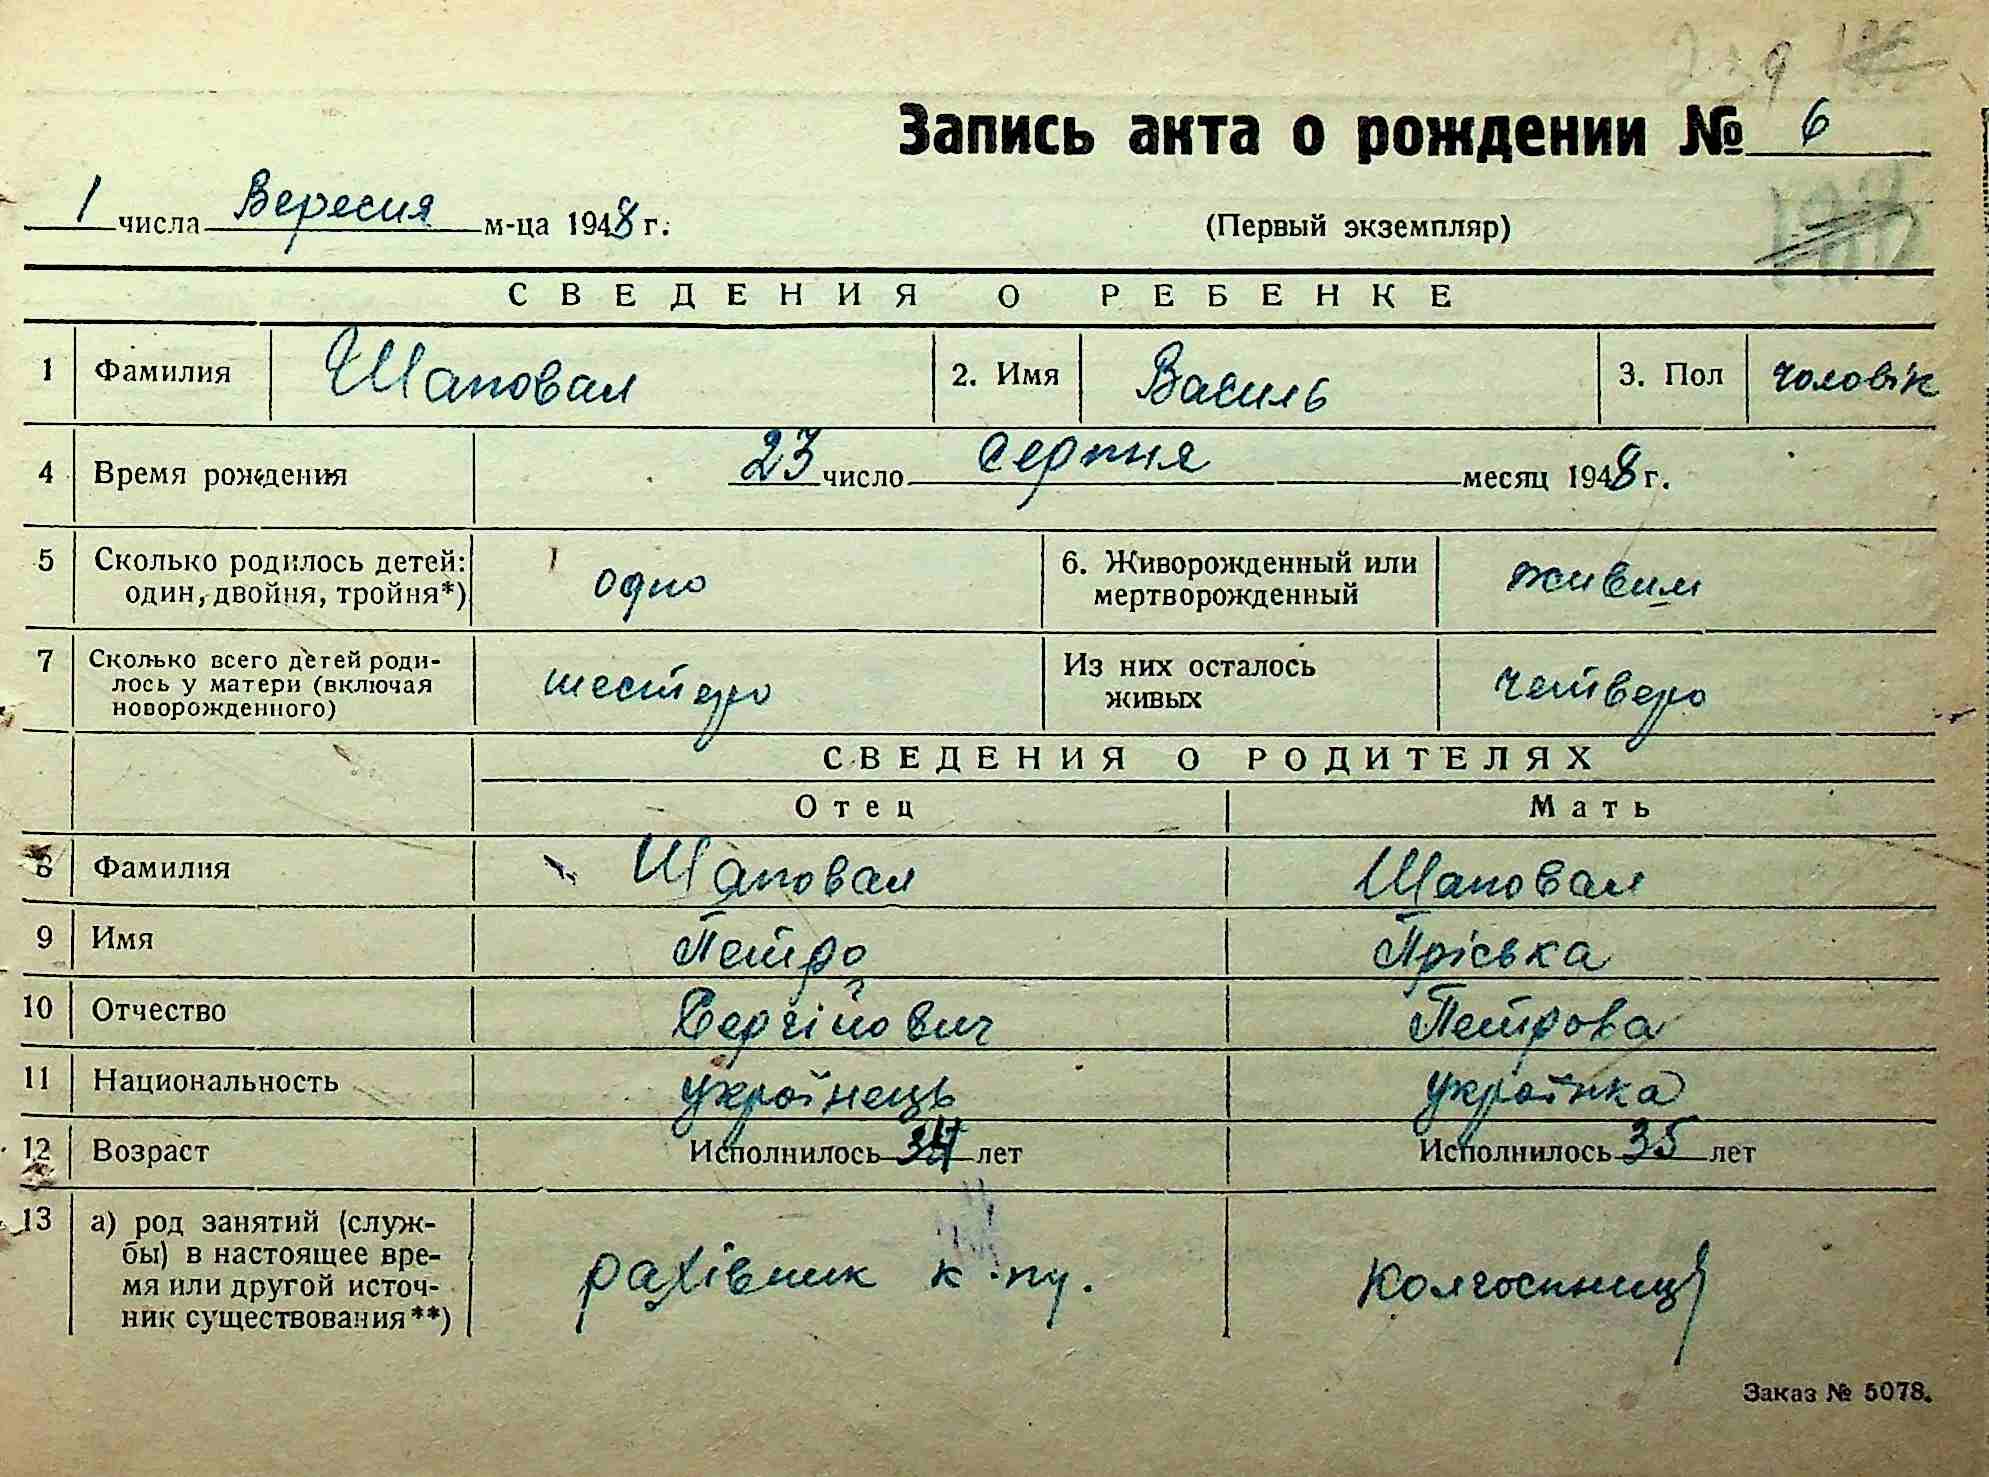 239
Запись акта о рождении № 6
1 числа Вересня м-ца 1948 г.
(Первый экземпляр)
СВЕДЕНИЯ О РЕБЕНКЕ
1 Фамилия Шаповал 2. Имя Василь 3. Пол чоловік
4 Время рождения 23 число серпня месяц 1948 г.
5 Сколько родилось детей: один, двойня, тройня*) одно 6. Живорожденный или мертворожденный живим
7 Сколько всего детей родилось у матери (включая новорожденного) шестеро Из них осталось живых четверо
СВЕДЕНИЯ О РОДИТЕЛЯХ
Отец Мать
8 Фамилия Шаповал Шаповал
9 Имя Петро Пріська
10 Отчество Сергійович Петрова
11 Национальность українець українка
12 Возраст Исполнилось 34 лет Исполнилось 35 лет
13 а) род занятий (службы) в настоящее время или другой источник существования**) рахівник к-пу. колгоспниця
Заказ № 5078.